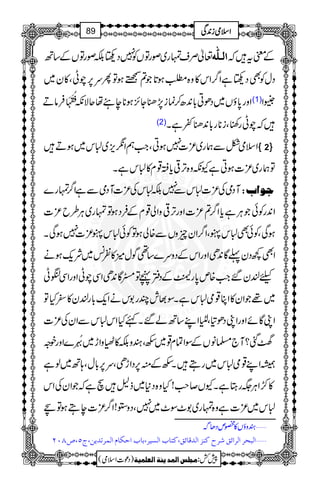 اسلامی زندگی 89
کے معنی ہیں یہ کہ اللہ تعالیٰ صرف تمہاری صورتوں کو نہیں دیکھتا بلکہ صورتوں کے ساتھ
دل کو بھی دیکھتا ہے اگر اس کا وہ مطلب ہوتا جو تم سمجھے تو پھر سر پر چوٹی، کان میں
جنیو(1) اور پاؤں میں دھوتی باندھ کر نماز پڑھنا جائز ہونا چاہئے تھا حالانکہ فقہاء فرماتے
ہیں کہ چوٹی رکھنا، زنار باندھنا کفر ہے۔(2)
{2} اسلامی شکل سے ہماری عزت نہیں ہوتی، جب ہم انگریزی لباس میں ہوتے ہیں
تو ہماری عزت ہوتی ہے کیونکہ وہ ترقی یافتہ قوم کا لباس ہے۔
جواب: آدمی کی عزت لباس سے نہیں بلکہ لباس کی عزت آدمی سے ہے اگر تمہارے
اندر کوئی جوہر ہے یا تم عزت اور ترقی والی قوم کے فرد ہو تو تمہاری ہر طرح عزت
ہوگی، کوئی بھی لباس پہنو، اگر ان چیزوں سے خالی ہو تو کوئی لباس پہنو عزت نہیں ہوگی۔
ابھی کچھ دن پہلے گاندھی اور اس کے دوسرے ساتھی گول میز کانفرنس میں شریک ہونے
کیلئے لندن گئے جب خاص پارلیمنٹ کے دفتر پہنچے تو مسٹر گاندھی اسی چوٹی اور اسی لنگوٹی
میں تھے جو ان کا اپنا قومی لباس ہے سبھاش چندر بوس نے ایک بار لندن کا سفر کیا تو
اپنی گائے اور اپنی دھوتی، لٹیا اپنے ساتھ لے گئے۔ کہئے کیا اس لباس سے ان کی عزت
گھٹ گئی؟ آج مسلمانوں کے سوا تمام قومیں سکھ، ہندو، بلکہ کاٹھیاواڑ میں بوہرے اور خوجہ
ہمیشہ اپنے قومی لباس میں رہتے ہیں۔ سکھ کے منہ پر داڑھی، سر پر بال، ہاتھ میں لوہے
کا کڑا ہر جگہ رہتا ہے۔ کیوں صاحب! کیا وہ دنیا میں ذلیل ہیں؟ سچ ہے کہ جو قوم اس
لباس میں عزت سے ہے وہ تمہاری بوٹ سوٹ میں نہیں، دوستو! اگر عزت چاہتے ہو تو سچے
ہندوؤں کا مخصوص دھاگہ
البحر الرائق شرح کنز الدقائق، کتاب السیر، باب احکام المرتدین، ج۵، ص۲۰۸
پیش کش: مجلس المدینۃ العلمیۃ (دعوتِ اسلامی)